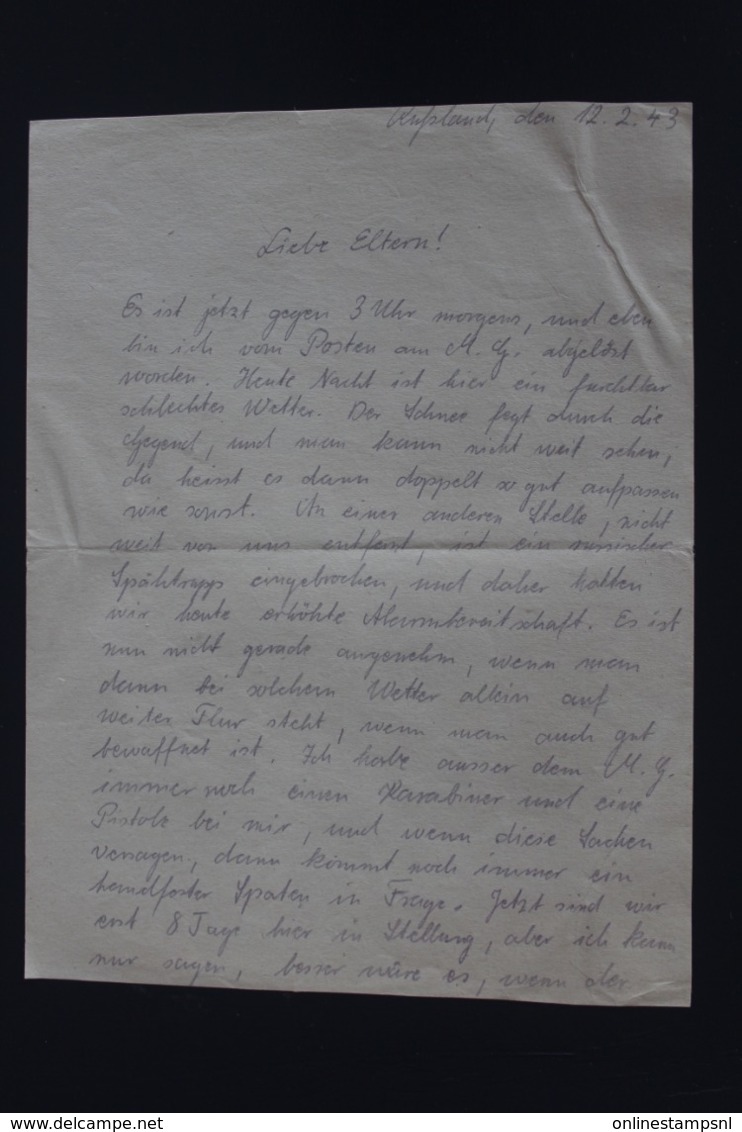 Rußland, den 12.2.43
Liebe Eltern!
Es ist jetzt gegen 3 Uhr morgens, und eben
bin ich vom Posten am M. G. abgelöst
worden. Heute Nacht ist hier ein furchtbar
schlechtes Wetter. Der Schnee fegt durch die
Gegend, und man kann nicht weit sehen,
da heisst es dann doppelt so gut aufpassen
wie sonst. An einer anderen Stelle, nicht
weit von uns entfernt, ist ein russischer
Spähtrupp eingebrochen, und daher hatten
wir heute erhöhte Alarmbereitschaft. Es ist
nun nicht gerade angenehm, wenn man
dann bei solchem Wetter allein auf
weiter Flur steht, wenn man auch gut
bewaffnet ist. Ich habe ausser dem M. G.
immer noch einen Karabiner und eine
Pistole bei mir, und wenn diese Sachen
versagen, dann kommt noch immer ein
handfester Spaten in Frage. Jetzt sind wir
erst 8 Tage hier in Stellung, aber ich kann
nur sagen, besser wäre es, wenn der
Delcampe.net
onlinestampsnl